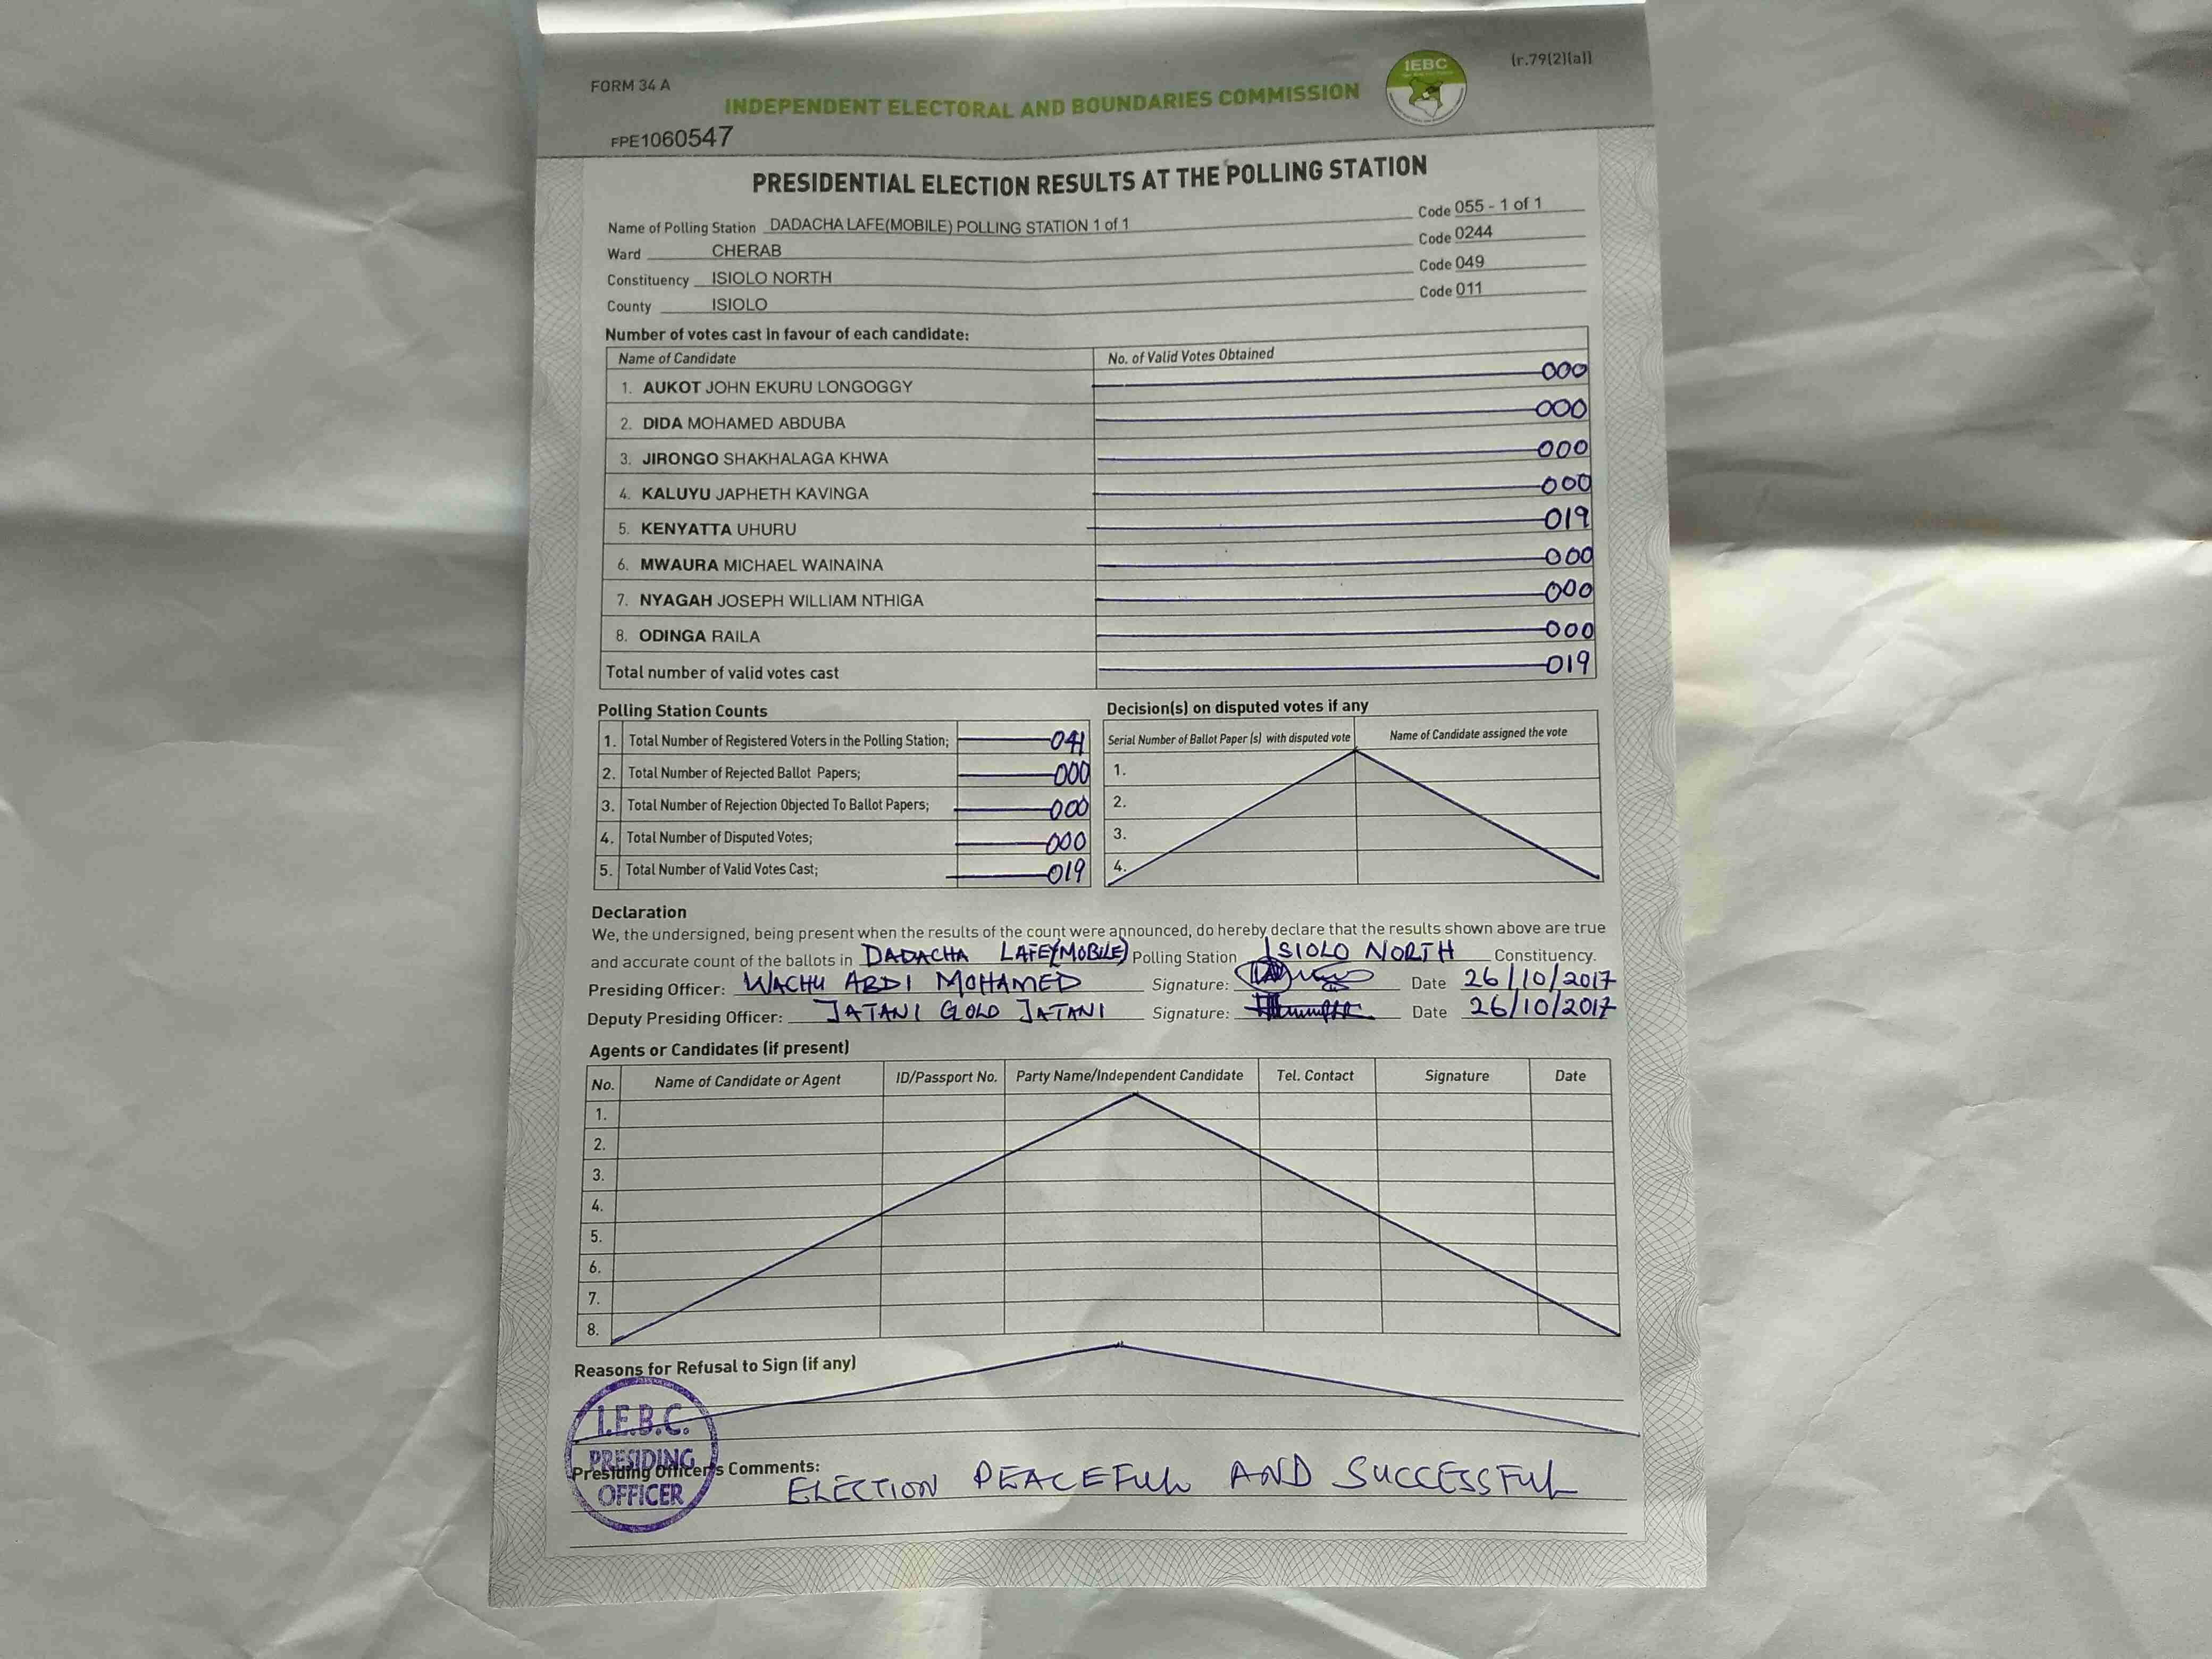 FORM 34 A
IEBC
(r.79(2)(a))
INDEPENDENT ELECTORAL AND BOUNDARIES COMMISSION
FPE1060547
PRESIDENTIAL ELECTION RESULTS AT THE POLLING STATION
Name of Polling Station DADACHA LAFE(MOBILE) POLLING STATION 1 of 1 Code 055 - 1 of 1
Ward CHERAB Code 0244
Constituency ISIOLO NORTH Code 049
County ISIOLO Code 011
Number of votes cast in favour of each candidate:
Name of Candidate No. of Valid Votes Obtained
1. AUKOT JOHN EKURU LONGOGGY 000
2. DIDA MOHAMED ABDUBA 000
3. JIRONGO SHAKHALAGA KHWA 000
4. KALUYU JAPHETH KAVINGA 000
5. KENYATTA UHURU 019
6. MWAURA MICHAEL WAINAINA 000
7. NYAGAH JOSEPH WILLIAM NTHIGA 000
8. ODINGA RAILA 000
Total number of valid votes cast 019
Polling Station Counts
1. Total Number of Registered Voters in the Polling Station; 041
2. Total Number of Rejected Ballot Papers; 000
3. Total Number of Rejection Objected To Ballot Papers; 000
4. Total Number of Disputed Votes; 000
5. Total Number of Valid Votes Cast; 019
Decision(s) on disputed votes if any
Serial Number of Ballot Paper (s) with disputed vote Name of Candidate assigned the vote
1.
2.
3.
4.
Declaration
We, the undersigned, being present when the results of the count were announced, do hereby declare that the results shown above are true
and accurate count of the ballots in DADACHA LAFE(MOBILE) Polling Station ISIOLO NORTH Constituency.
Presiding Officer: WACHU ABDI MOHAMED Signature: Date 26/10/2017
Deputy Presiding Officer: JATANI GOLO JATANI Signature: Date 26/10/2017
Agents or Candidates (if present)
No. Name of Candidate or Agent ID/Passport No. Party Name/Independent Candidate Tel. Contact Signature Date
1.
2.
3.
4.
5.
6.
7.
8.
Reasons for Refusal to Sign (if any)
I.E.B.C.
PRESIDING
OFFICER
Presiding Officer's Comments: ELECTION PEACEFUL AND SUCCESSFUL